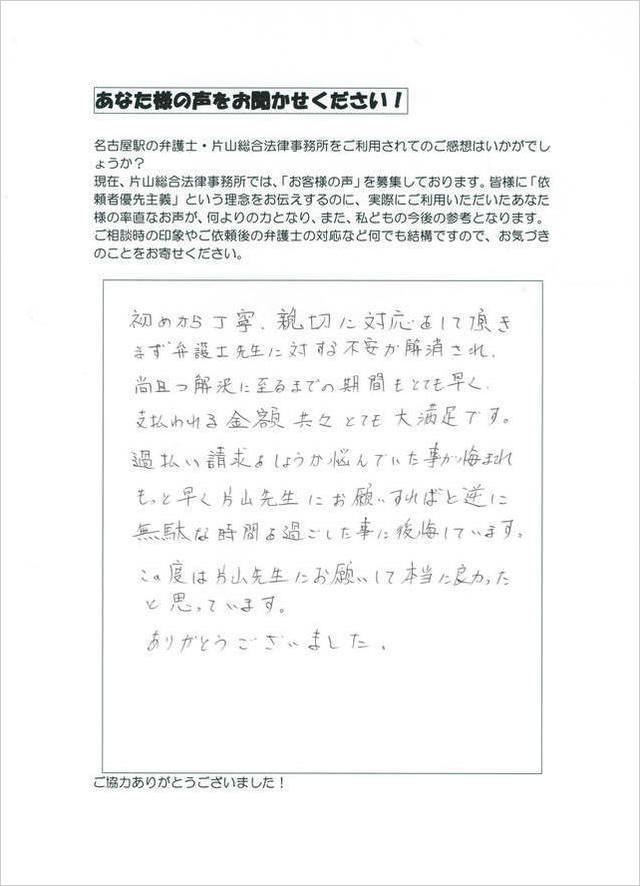 あなた様の声をお聞かせください！
名古屋駅の弁護士・片山総合法律事務所をご利用されてのご感想はいかがでし
ょうか？
現在、片山総合法律事務所では、「お客様の声」を募集しております。皆様に「依
頼者優先主義」という理念をお伝えするのに、実際にご利用いただいたあなた
様の率直なお声が、何よりの力となり、また、私どもの今後の参考となります。
ご相談時の印象やご依頼後の弁護士の対応など何でも結構ですので、お気づき
のことをお寄せください。
初めから丁寧、親切に対応をして頂き
まず弁護士先生に対する不安が解消され、
尚且つ解決に至るまでの期間もとても早く、
支払われる金額共々とても大満足です。
過払い請求をしようか悩んでいた事が悔まれ
もっと早く片山先生にお願いすればと逆に
無駄な時間を過ごした事に後悔しています。
この度は片山先生にお願いして本当に良かった
と思っています。
ありがとうございました。
ご協力ありがとうございました！